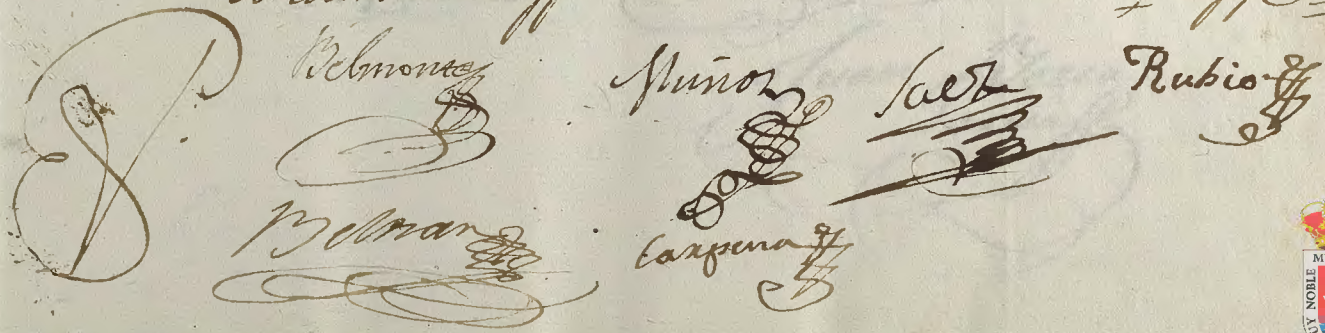 Belmonte Muñoz Saez Rubio
Beltran Carpena
NOBLE